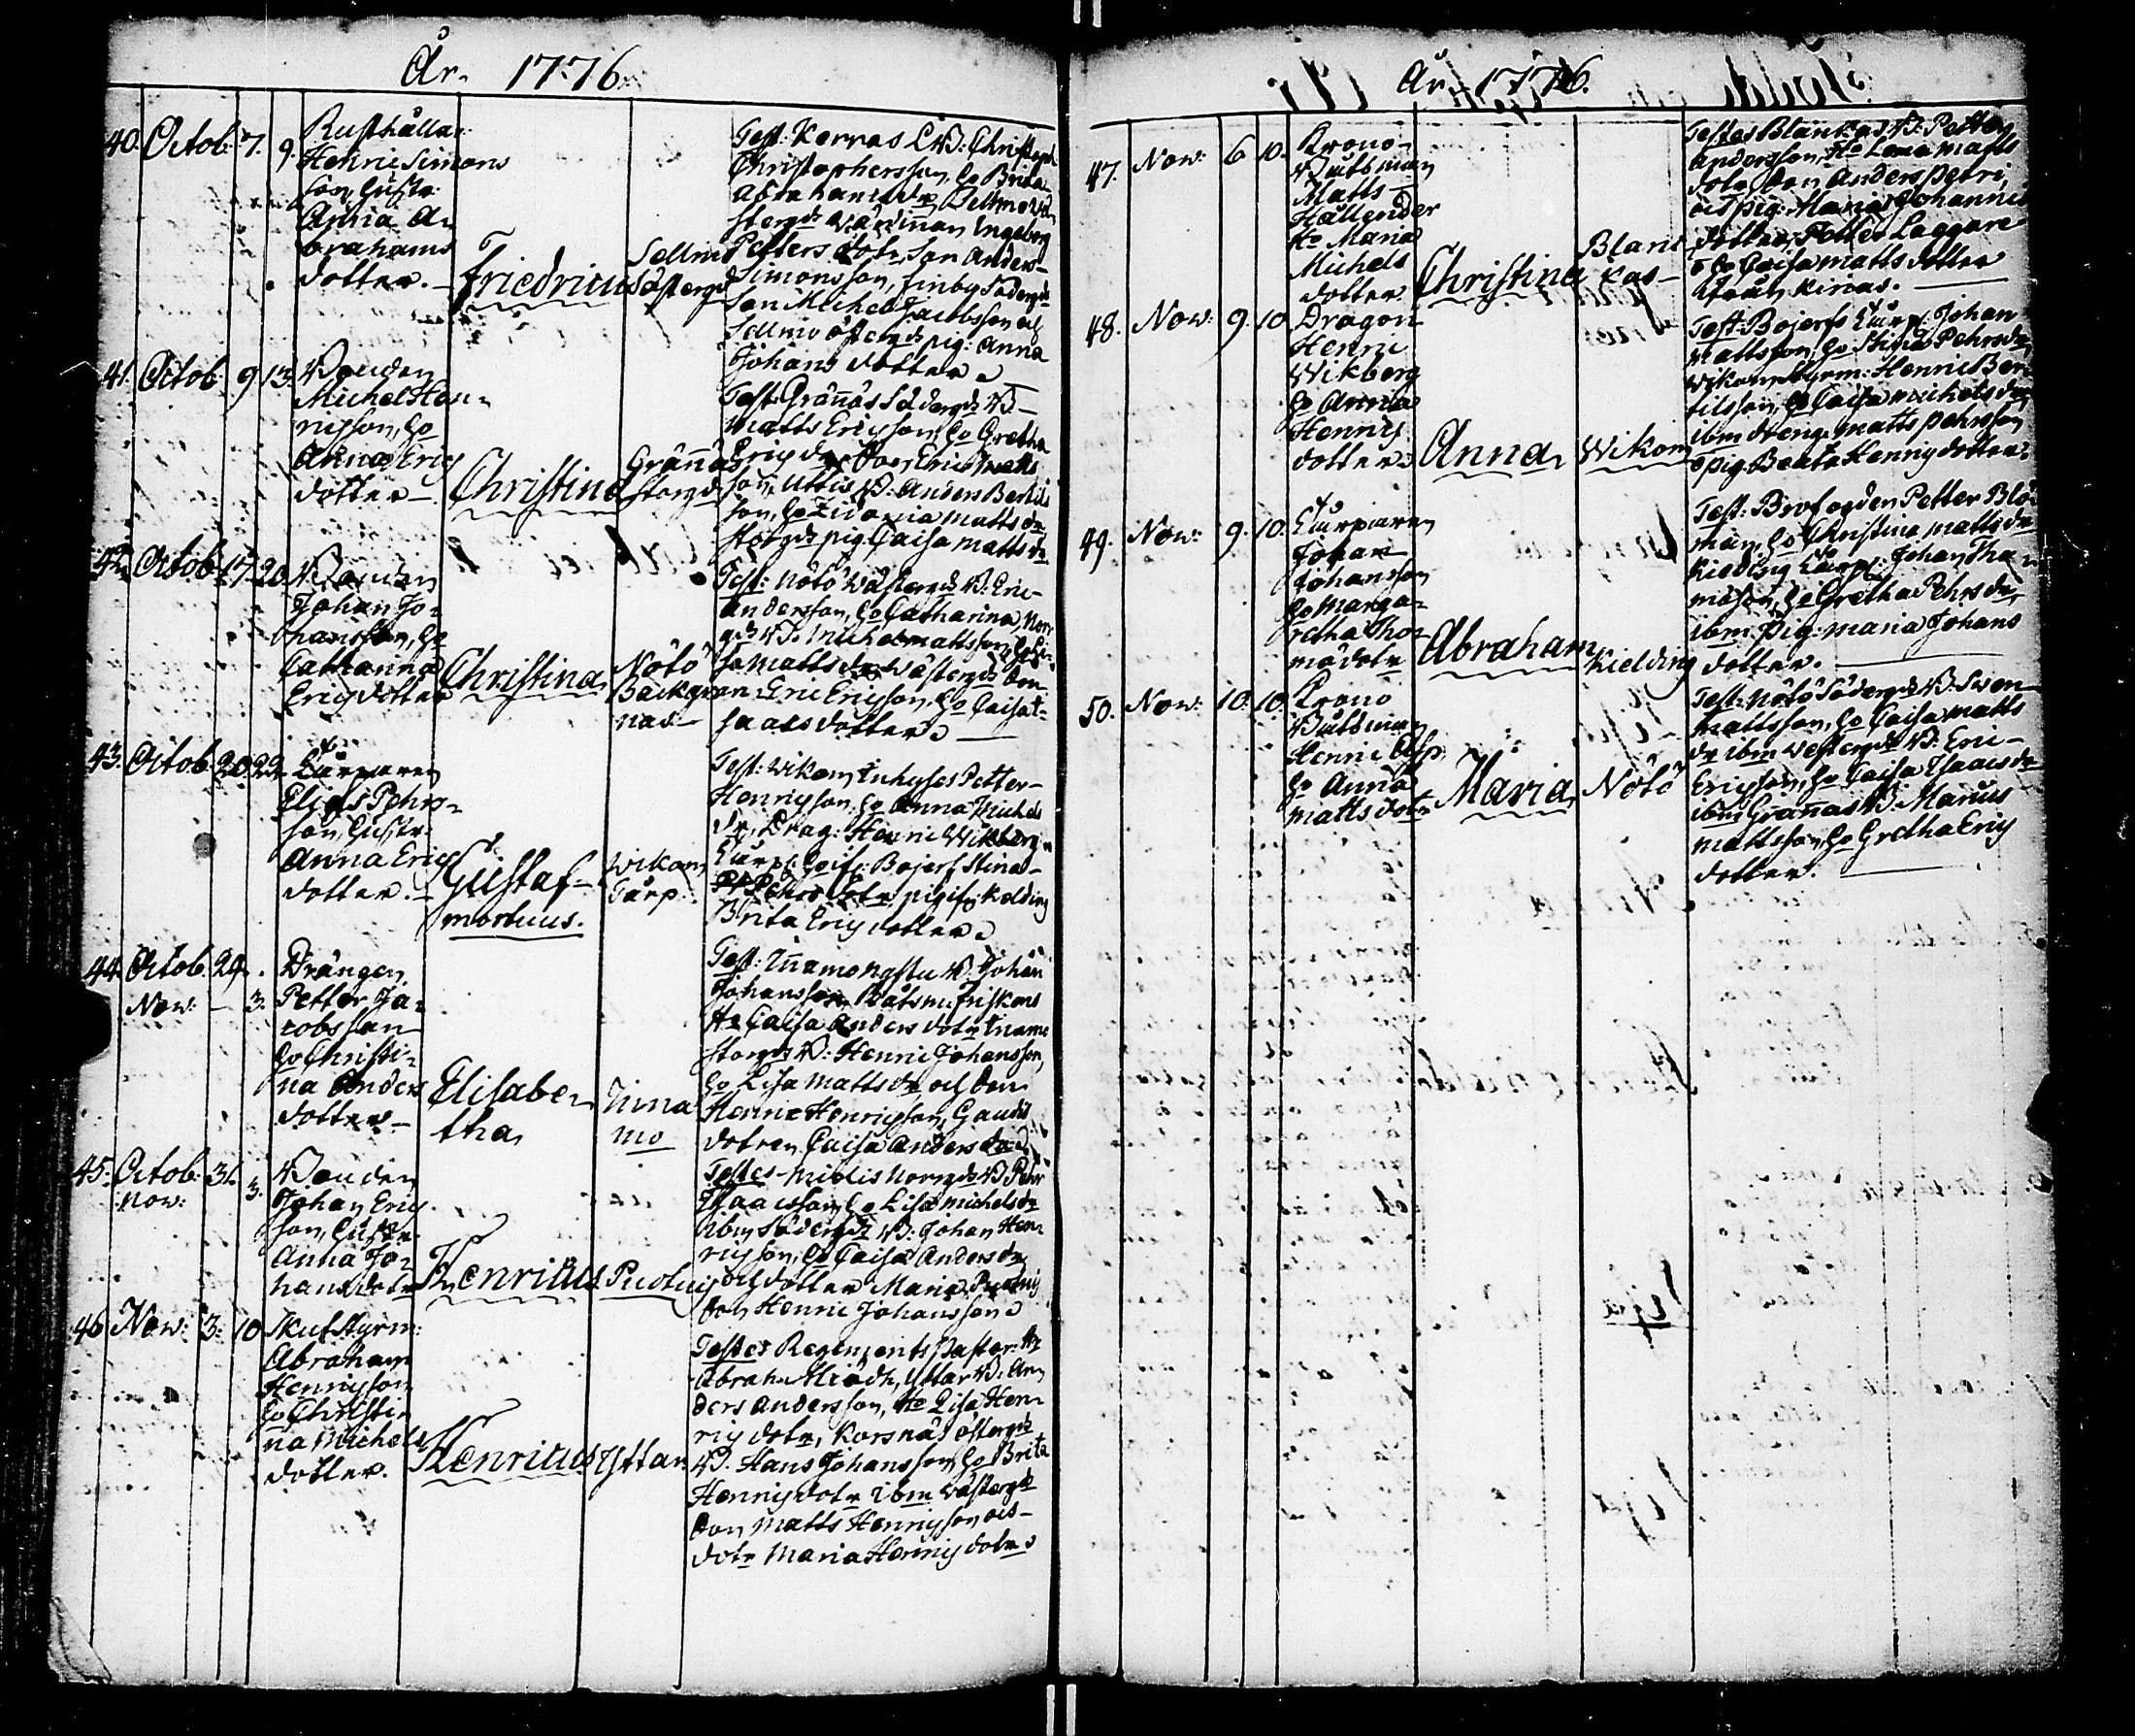 År 1776.
40. Octob: 7. 9.
Rusthållar:
Henric Simons
son, hustr:
Anna A=
brahams
dotter.
Friedricus
Sellmo
östergd
Test: Kernas L B: Christoph
Christophersson, ho Brita
Abrahams dr, Sellmo
Wärdinnan Ingeborg
Petters dotr, Son Anders
Simonsson, Finby Södergds
Son Michel Jacobsson och
Sellmo östergds pig: Anna
Johans dotter
41. Octob: 9 13.
Bonden
Michel Hen=
ricsson, ho
Anna Erics
dotter
Christina
Grännäs
storgd
Test: Grännäs Södergds B.
Matts Ericsson, ho Gretha
Erics dr Son Eric Matts
son, Uttis B: Anders Bertils
son, ho Zidonia Matts dr
storgds pig. Caisa Matts dr
42. Octob 17. 20.
Bonden
Johan Jo=
hansson, ho
Catharina
Erics dotter
Christina
Nötö
Backgren
nas
Test: Nötö Wästergds B. Eric
Andersson, ho Catharina, Norr
gds B. Michel Mattsson, ho
Matts dr Wästergds Son
Eric Ericsson, ho Caisa I=
saacs dotter
43. Octob. 20. 22
Elias Pehrs=
son, hustr.
Anna Erics
dotter.
Gustaf
mortuus.
Wikom
Torp
Test: Wikom Inhyses Petter
Henricsson, ho Anna Michels
dr, Drag: Henric Wikberg
Bojers Stina
Pehrs dotr, pig ifr Kelding
Brita Erics dotter
44. Octob. 29.
Now: 3.
Drängen
Petter Ja=
cobsson
ho Christi=
na Anders
dotter
Elisabe=
tha
Inna
mo
Test: Innamo B. Johan
Johansson, Båtsm: Friskens
Ho Caisa Anders dotr Iname
storgds B: Henric Johansson,
ho Lisa Matts dr, och Son
Henric Henricsson,
dotren Caisa Anders dr
45. Octob: 31.
Now: 3.
Bonden
Johan Erics
son, hustr.
Anna Jo=
hans dotr
Henricus
Testes Miolis Norrgds B. Pehr
Isaacsson, ho Lisa Michels dr
ibm Södergds B. Johan Hen=
ricsson, ho Caisa Anders dr
och dotter Maria,
Son Henric Johansson
46 Now: 3. 10
Skutstyrm:
Abraham
Henricsson
ho Christi=
na Michels
dotter.
Henricus
Yttar
Testes Regements Pastor: Hr
Abrah. Miödh, Yttar B. An=
ders Andersson, Ho Lisa Hen=
rics dotr, Korsnäs östergds
B. Hans Johansson, ho Brita
Henrics dotr ibm Wästergds
Son Matts Henricsson och
dotr Maria Henrics dotr
År 1776.
47. Now: 6 10.
Krono
Båtsman
Matts
Hällender
Ho Maria
Michels
dotter
Christina
Blanc
kas
Testes Blankas B: Petter
Andersson, Ho Lena Matts
dotr, Son Anders Petri,
och pig. Maria Johannis
dotter, Petter Laggare
ho Caisa Matts dotter
ifrån Kirias.
48. Now: 9. 10.
Dragon
Henric
Wikberg
ho Anna
Henrics
dotter
Anna
Wikom
Test: Bojers Johan
Mattsson, ho Stina Pehrs dr
Wikom Styrm: Henric Ber=
tilsson, ho Caisa Michels dr
ibm dreng. Matts Pehrsson
pig. Beata Henrics dotter.
49. Now: 9. 10.
Johan
Johansson
ho Marga=
retha Tho=
mä dotr
Abraham
Kielding
Test: Brofogden Petter Blo=
man, ho Christina Matts dr
Kielding Johan Tho=
masson, ho Gretha Pehrs dr,
ibm pig: Maria Johans
dotter.
50. Now: 10. 10.
Krono
Båtsman
Henric
ho Anna
Matts dotr
Maria
Nötö
Test: Nötö Södergds B. Swen
Mattsson, ho Caisa Matts
dr ibm Westergds B. Eric
Ericsson, ho Caisa Isaacs dr
ibm Grannas B. Marcus
Mattsson, ho Gretha Erics
dotter.